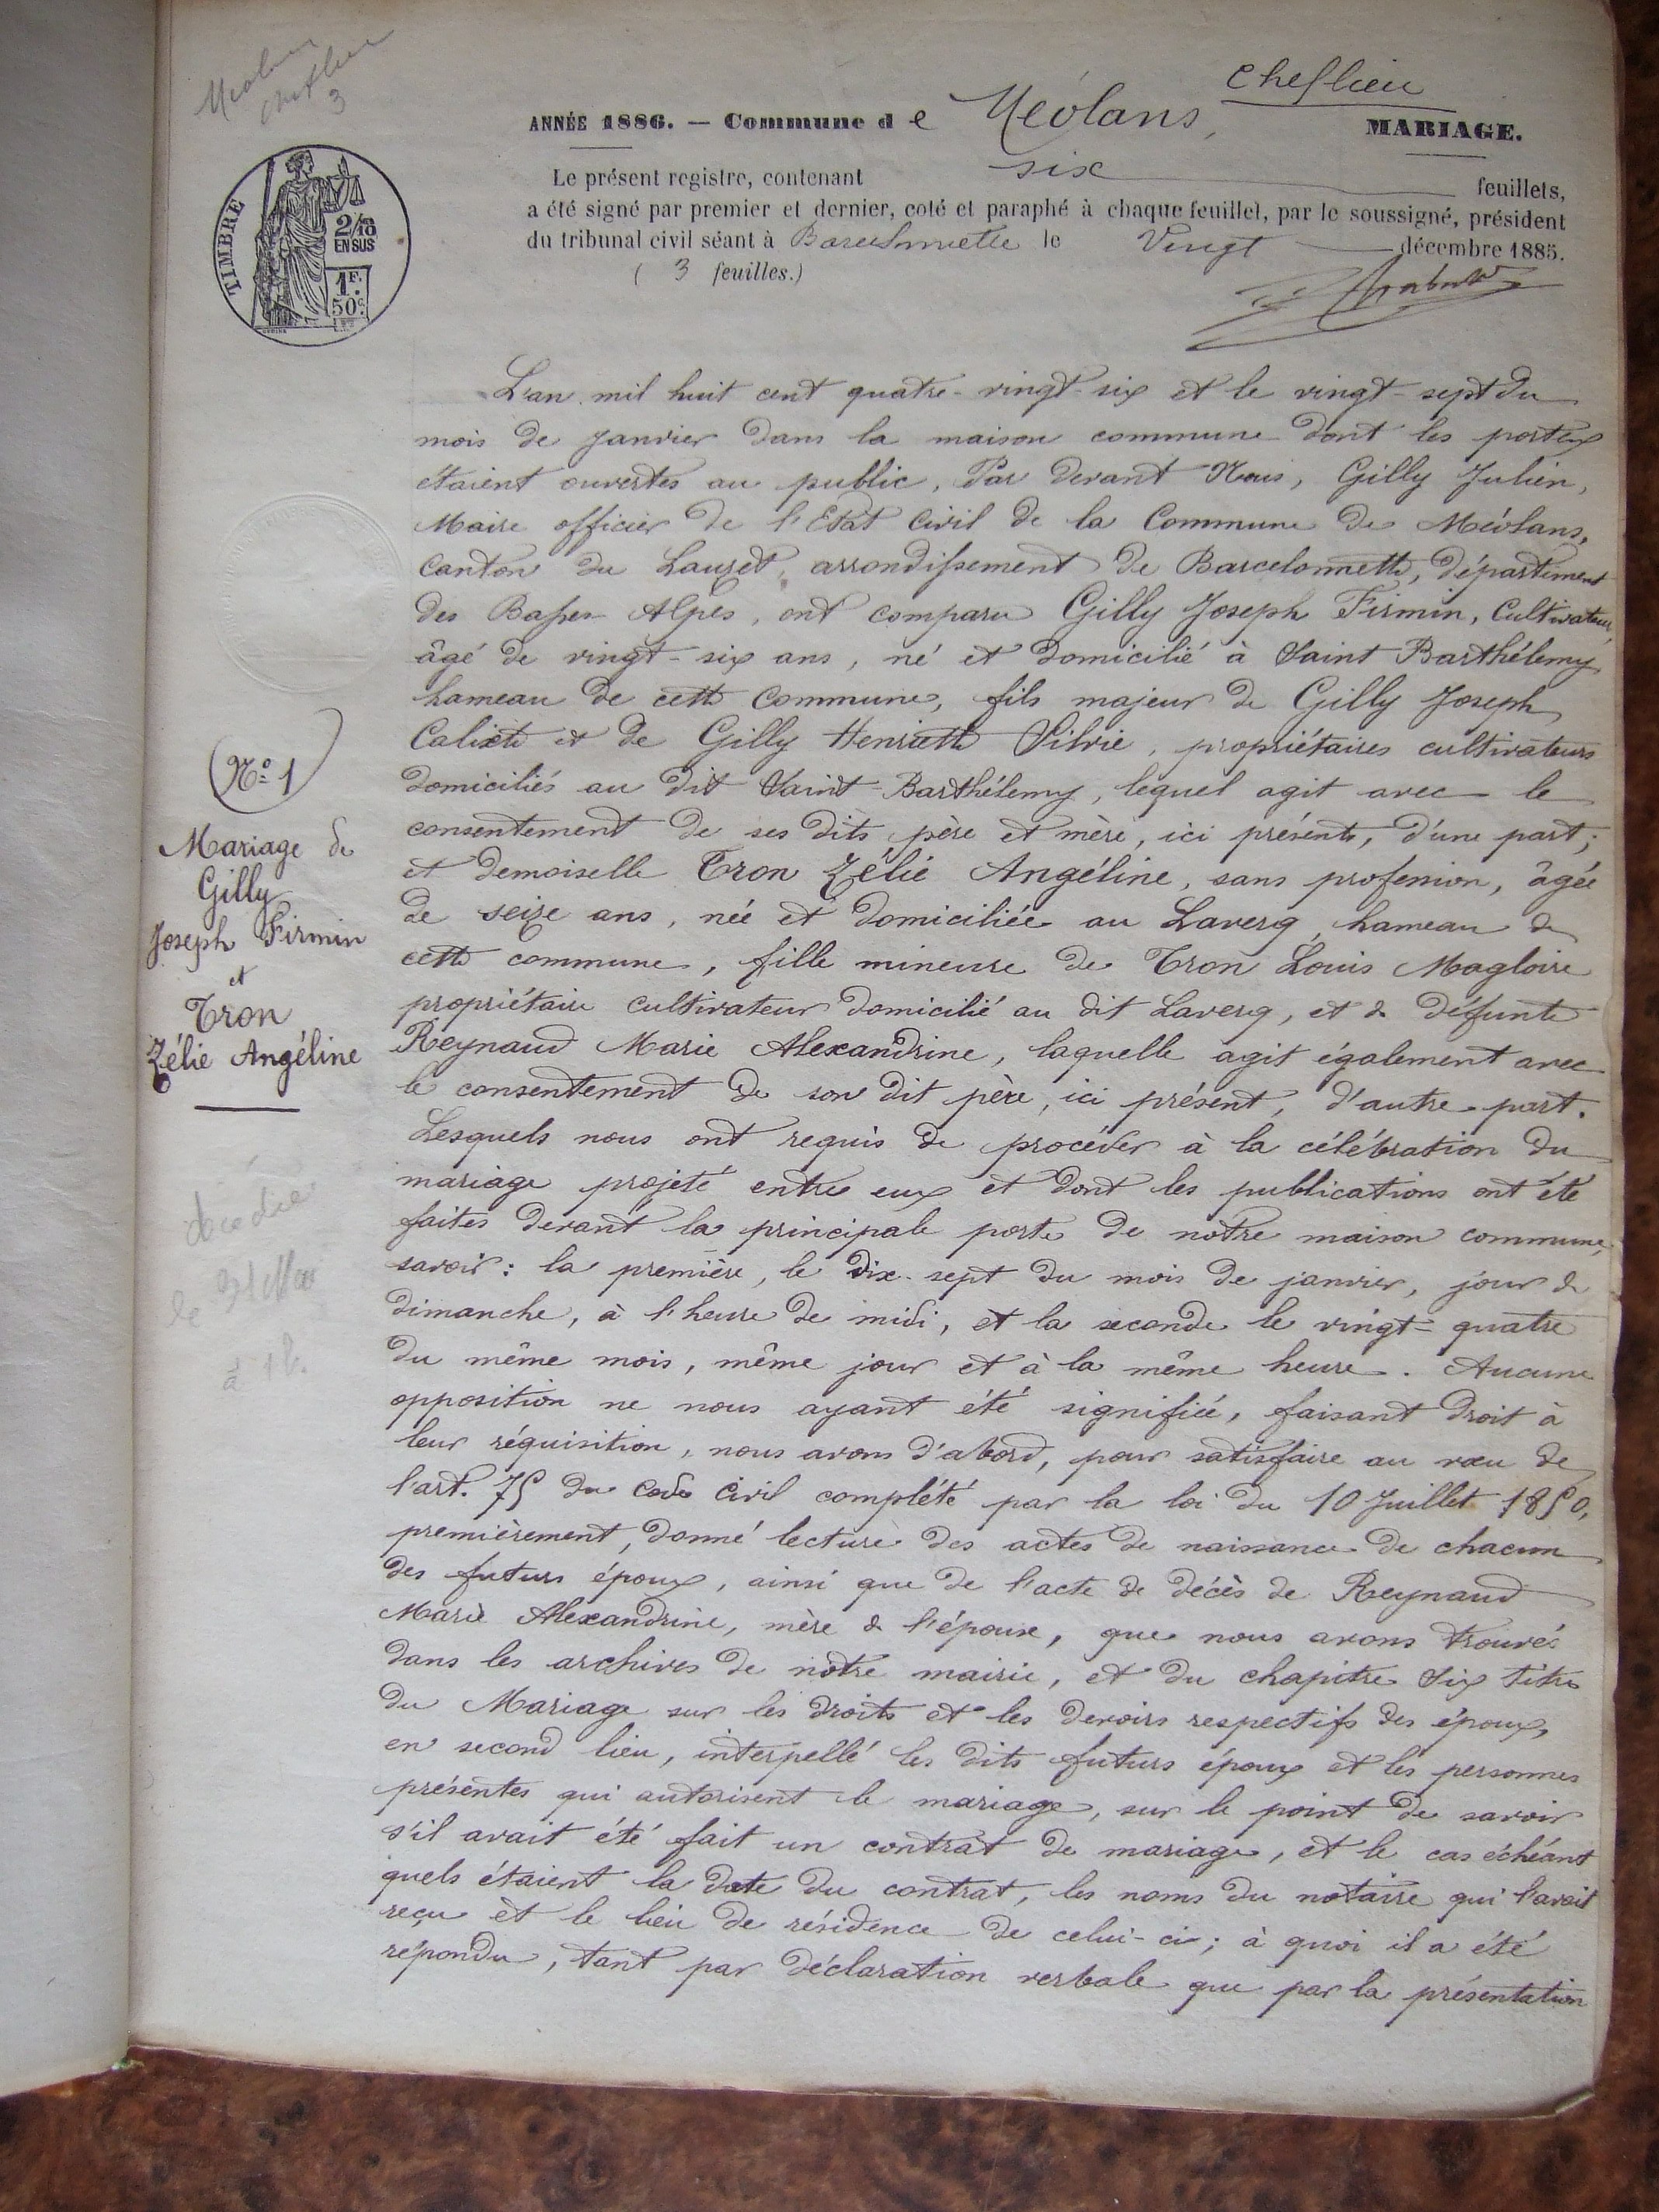 cheflieu
ANNÉE 1886. — Commune de Méolans, MARIAGE.
Le présent registre, contenant six feuillets,
a été signé par premier et dernier, coté et paraphé à chaque feuillet, par le soussigné, président
du tribunal civil séant à Barcelonnette le Vingt décembre 1885.
( 3 feuilles.)
TIMBRE
2/10
EN SUS
1F.
50c
L'an mil huit cent quatre-vingt-six et le vingt-sept du
mois de Janvier dans la maison commune dont les portes
étaient ouvertes au public, Par devant Nous, Gilly Julien,
Maire officier de l'Etat Civil de la Commune de Méolans,
Canton du Lauzet, arrondissement de Barcelonnette, département
des Basses Alpes, ont comparu Gilly Joseph Firmin, Cultivateur,
âgé de vingt-six ans, né et domicilié à Saint Barthélemy
hameau de cette Commune, fils majeur de Gilly Joseph
Calixte et de Gilly Henriette Silvie, propriétaires cultivateurs
domiciliés au dit Saint-Barthélemy, lequel agit avec le
consentement de ses dits père et mère, ici présents, d'une part;
et demoiselle Tron Zélie Angéline, sans profession, âgée
de seize ans, née et domiciliée au Laverq, hameau de
cette commune, fille mineure de Tron Louis Magloire
propriétaire cultivateur domicilié au dit Laverq, et de défunte
Reynaud Marie Alexandrine, laquelle agit également avec
le consentement de son dit père, ici présent, d'autre part.
Lesquels nous ont requis de procéder à la célébration du
mariage projeté entre eux et dont les publications ont été
faites devant la principale porte de nôtre maison commune,
savoir: la première, le dix-sept du mois de janvier, jour de
dimanche, à l'heure de midi, et la seconde le vingt-quatre
du même mois, même jour et à la même heure. Aucune
opposition ne nous ayant été signifiée, faisant droit à
leur réquisition, nous avons d'abord, pour satisfaire au vœu de
l'art. 75 du Code Civil complété par la loi du 10 Juillet 1850,
premièrement, donné lecture des actes de naissance de chacun
des futurs époux, ainsi que de l'acte de décès de Reynaud
Marie Alexandrine, mère de l'épouse, que nous avons trouvés
dans les archives de nôtre mairie, et du chapitre Six titre
du Mariage sur les droits et les devoirs respectifs des époux,
en second lieu, interpellé les dits futurs époux et les personnes
présentes qui autorisent le mariage, sur le point de savoir
s'il avait été fait un contrat de mariage, et le cas échéant
quels étaient la date du contrat, les noms du notaire qui l'avait
reçu et le lieu de résidence de celui-ci; à quoi il a été
répondu, tant par déclaration verbale que par la présentation
N° 1
Mariage de
Gilly
Joseph Firmin
et
Tron
Zélie Angéline